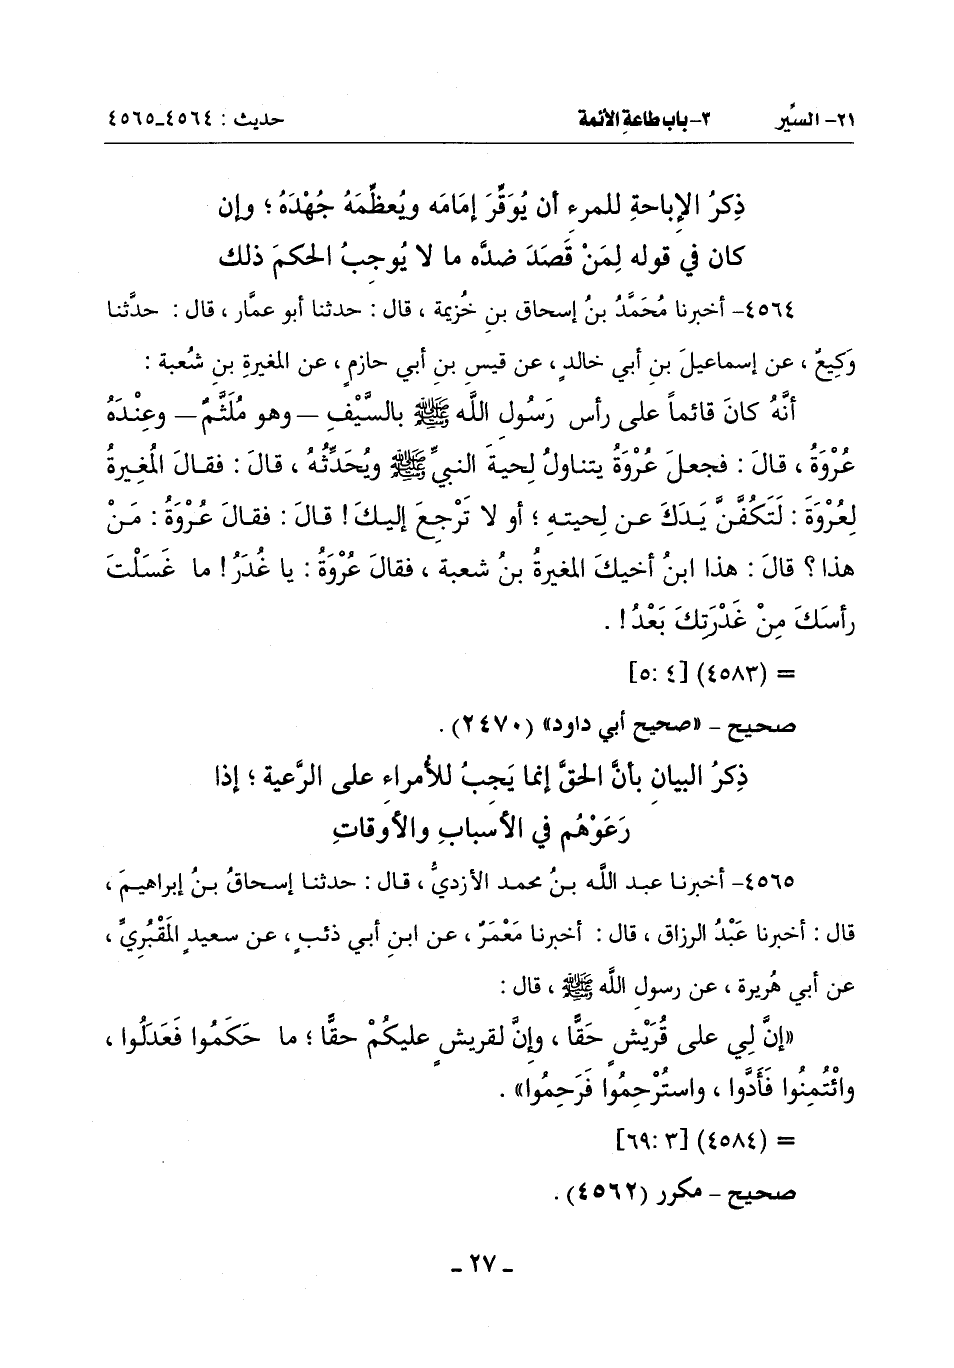 ٢١- السِّير ٣- باب طاعة الأئمة حديث : ٤٥٦٤ـ٤٥٦٥
ذِكرُ الإباحةِ للمرءِ أن يُوَقِّرَ إمَامَه ويُعظِّمَهُ جُهْدَهُ ؛ وإن
كان في قوله لِمَنْ قَصَدَ ضدَّه ما لا يُوجِبُ الحكمَ ذلك
٤٥٦٤- أخبرنا مُحَمَّدُ بنُ إسحاق بنِ خُزيمة ، قال : حدثنا أبو عمَّار ، قال : حدَّثنا
وَكِيعٌ ، عن إسماعيلَ بنِ أبي خالدٍ ، عن قيسِ بنِ أبي حازمٍ ، عن المغيرةِ بنِ شُعبة :
أنَّهُ كانَ قائماً على رأسِ رَسُول اللَّه ﷺ بالسَّيْفِ ــ وهو مُلَثَّمٌ ــ وعِنْدَهُ
عُرْوَةُ ، قالَ : فجعلَ عُرْوَةُ يتناولُ لِحيةَ النبيِّ ﷺ ويُحَدِّثُهُ ، قالَ : فقالَ المُغِيرةُ
لِعُرْوَةَ : لَتَكُفَّنَّ يَدَكَ عن لِحيتهِ ؛ أو لا تَرْجِعَ إليكَ ! قالَ : فقالَ عُرْوَةُ : مَنْ
هذا ؟ قالَ : هذا ابنُ أخيكَ المغيرةُ بنُ شعبة ، فقالَ عُرْوَةُ : يا غُدَرُ ! ما غَسَلْتَ
رأسَكَ مِنْ غَدْرَتِكَ بَعْدُ ! .
= (٤٥٨٣) [٤ :٥]
صحيح - «صحيح أبي داود» (٢٤٧٠) .
ذِكرُ البيان بأنَّ الحقَّ إنما يَجِبُ للأُمراءِ على الرَّعية ؛ إذا
رَعَوْهُم في الأسبابِ والأوقاتِ
٤٥٦٥- أخبرنا عبد اللَّه بنُ محمد الأزديُّ ، قال : حدثنا إسحاقُ بنُ إبراهيمَ ،
قال : أخبرنا عَبْدُ الرزاق ، قال : أخبرنا مَعْمَرٌ ، عن ابنِ أبي ذئبٍ ، عن سعيدٍ المَقْبُرِيِّ ،
عن أبي هُريرة ، عن رسولِ اللَّه ﷺ ، قال :
«إنَّ لِي على قُرَيْشٍ حَقًّا ، وإنَّ لقريشٍ عليكُمْ حقًّا ؛ ما حَكَمُوا فَعَدَلُوا ،
وائْتُمِنُوا فَأَدَّوا ، واسْتُرْحِمُوا فَرَحِمُوا» .
= (٤٥٨٤) [٣ :٦٩]
صحيح - مكرر (٤٥٦٢) .
ـ ٢٧ ـ